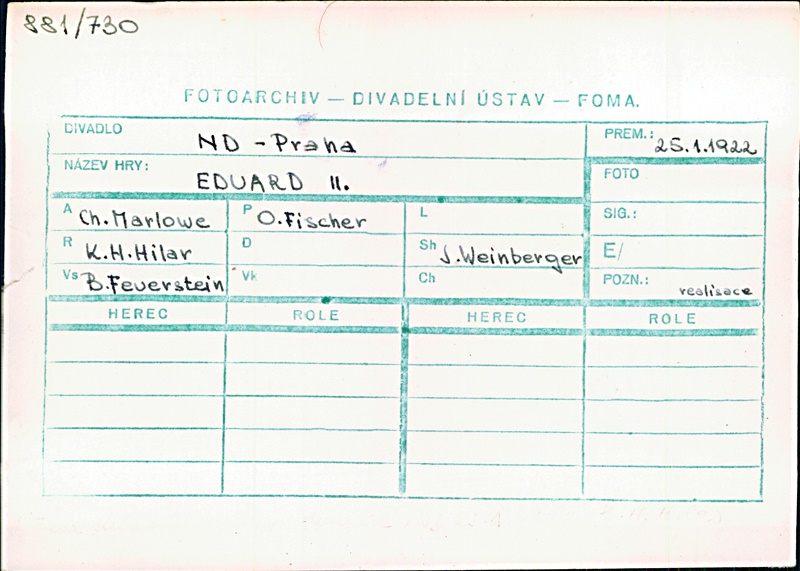 881/730
FOTOARCHIV — DIVADELNÍ ÚSTAV — FOMA.
DIVADLO ND - Praha PREM.: 25.1.1922
NÁZEV HRY: EDUARD II. FOTO
A Ch. Marlowe P O. Fischer L SIG.:
R K.H. Hilar D Sh J. Weinberger E/
Vs B. Feuerstein Vk Ch POZN.: realisace
HEREC ROLE HEREC ROLE